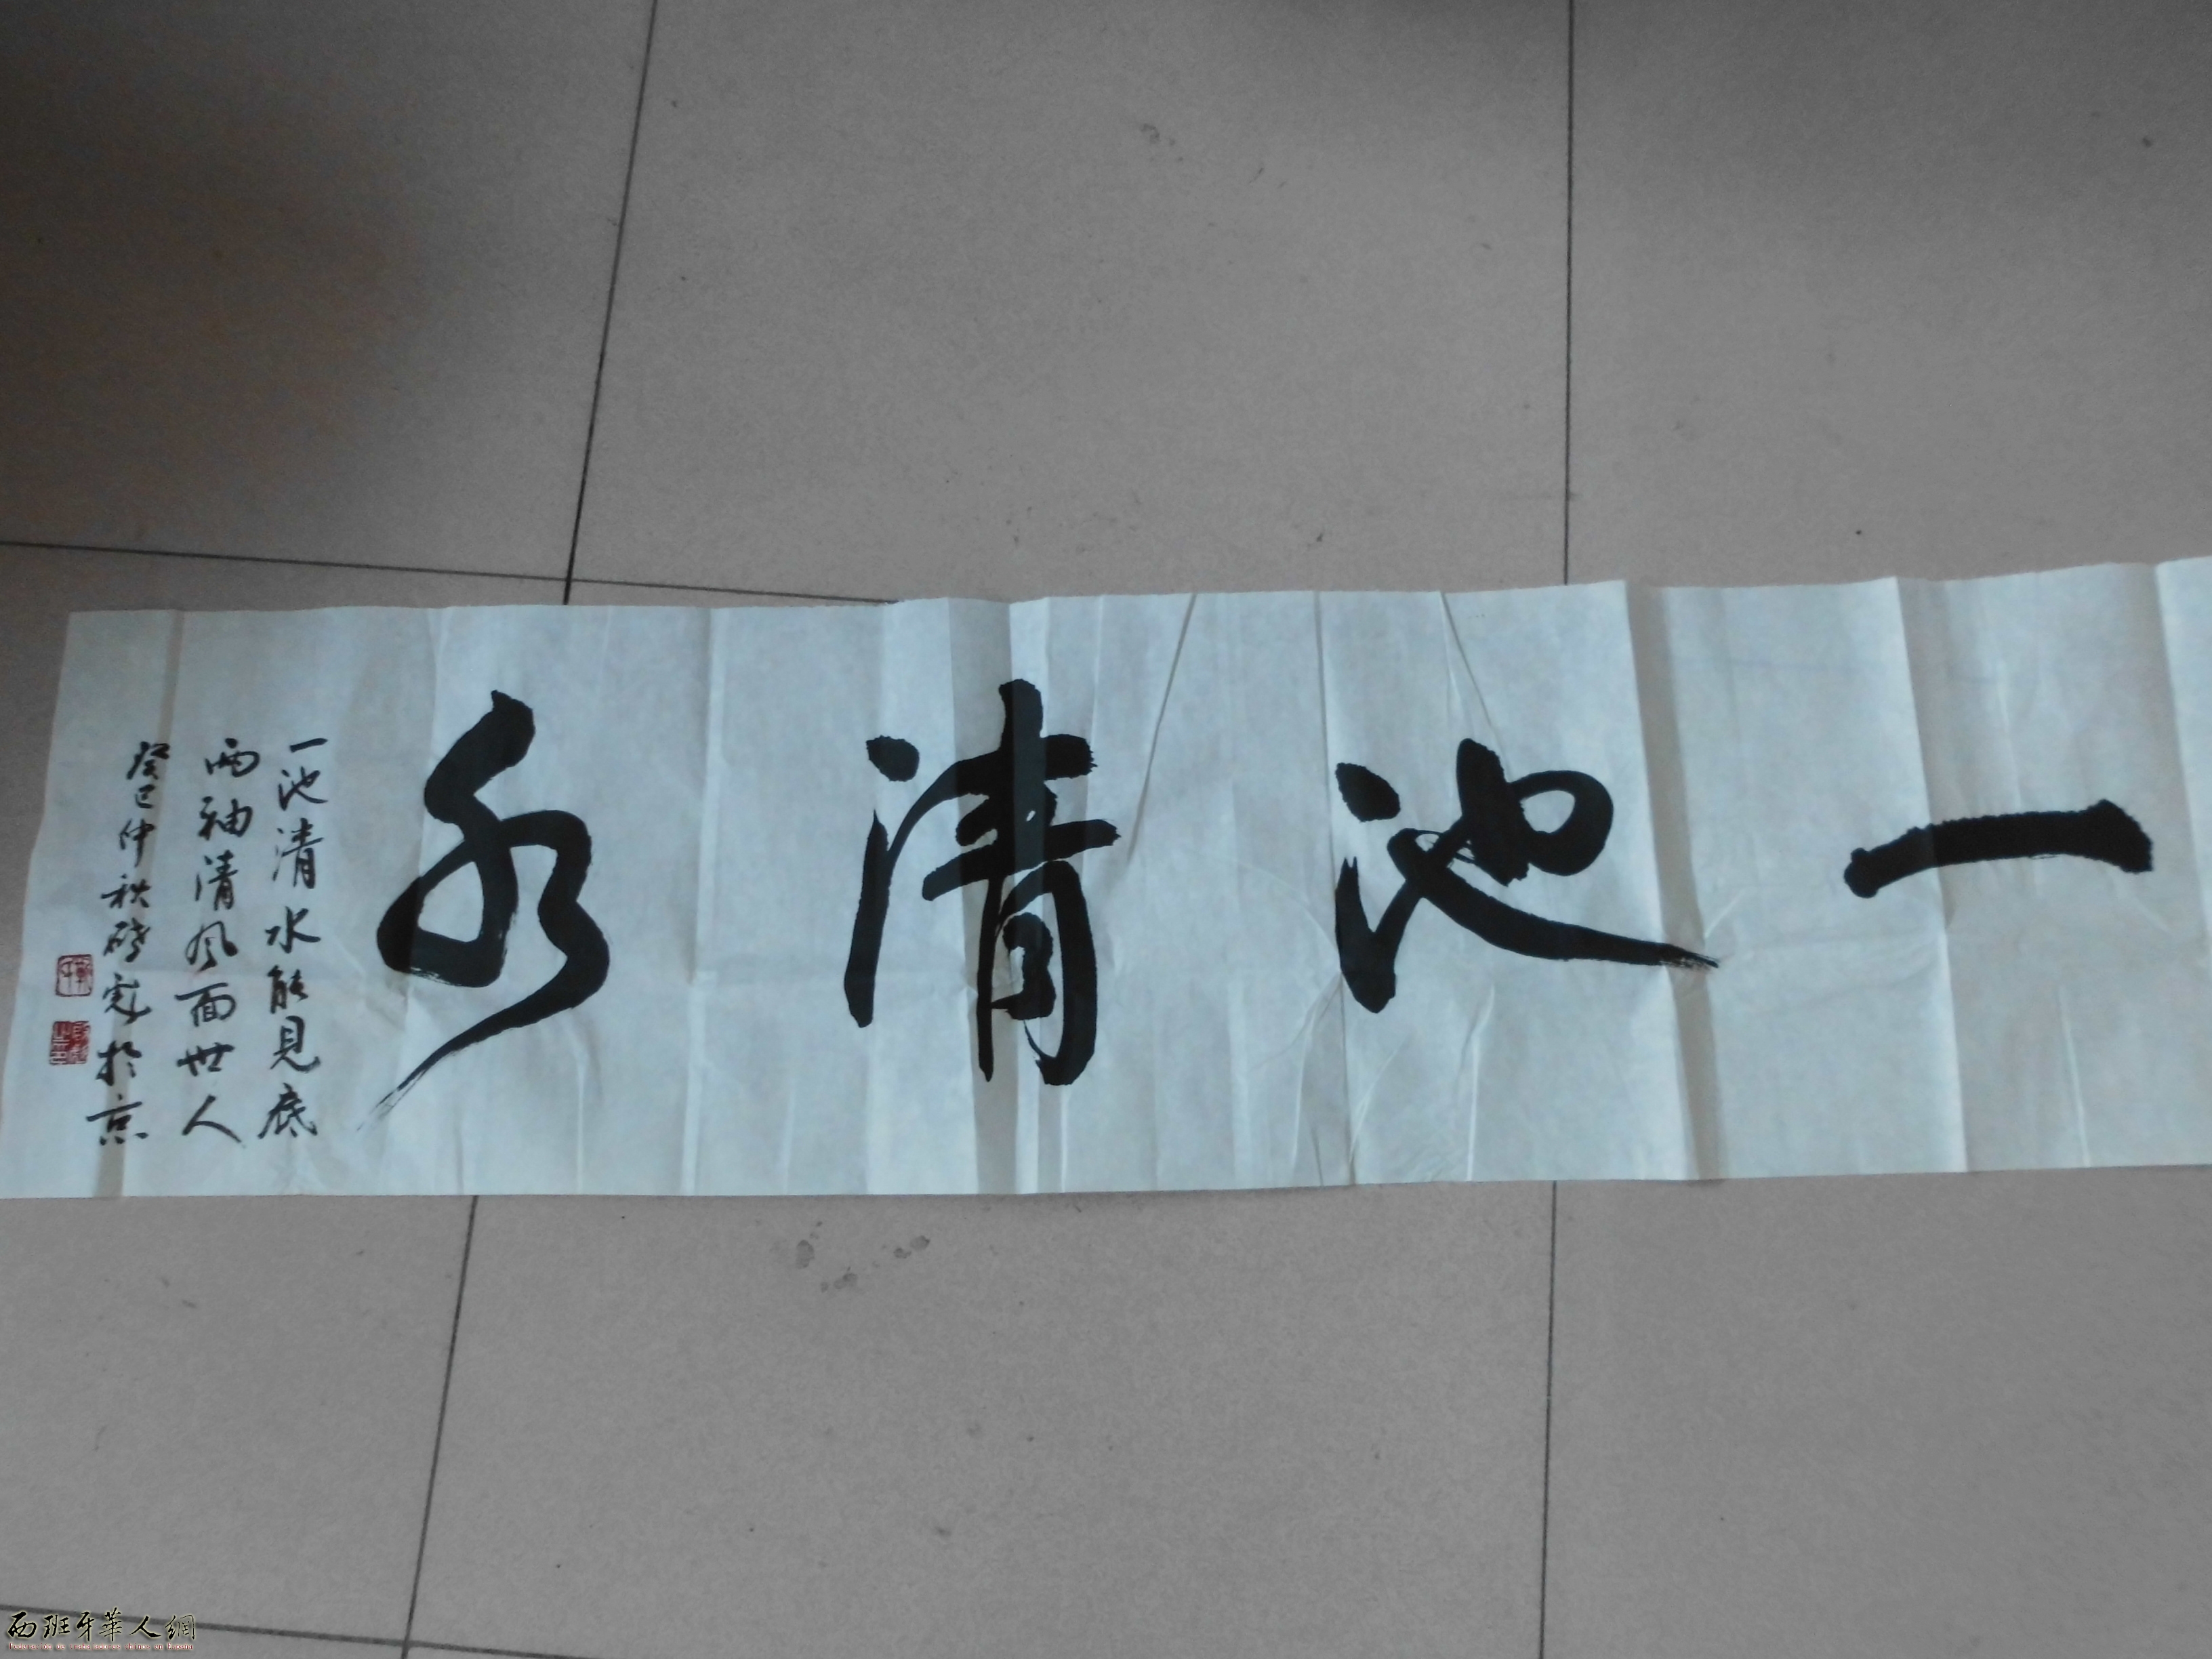 一池清水
一池清水能见底
两袖清风面世人
癸巳仲秋 於京
西班牙華人網